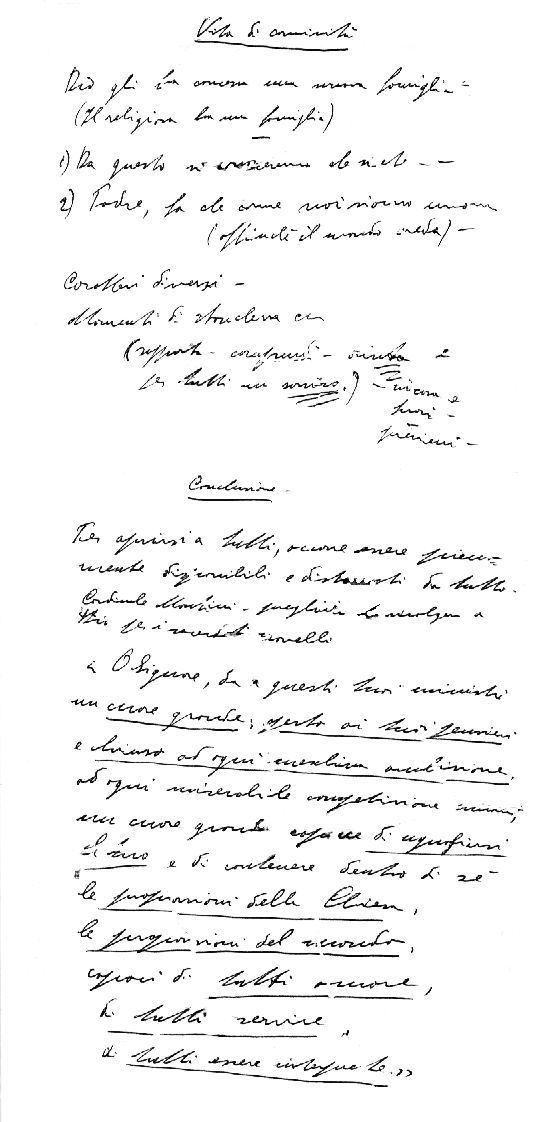 Vita di comunità
Dio gli ha concesso una nuova famiglia =
(Il religioso ha una famiglia)
1) Da questo vi conosceranno che siete - -
2) Padre, fa che come noi siamo uno
(affinché il mondo creda) -
Caratteri diversi -
Momenti di stanchezza
(rapporti - -
per tutti un sorriso.) - ancora e
fuori -
pensieri -
Conclusione -
Per aprirsi a tutti, occorre essere piena=
mente disponibili e distaccati da tutto.
Cardinale - preghiera da rivolgere a
Dio per i novelli
« O Signore, da a questi tuoi ministri
un cuore grande, aperto ai tuoi pensieri
e chiuso ad ogni meschina ambizione,
ad ogni miserabile competizione umana;
un cuore grande capace di uguagliarsi
al tuo e di contenere dentro di sé
le proporzioni della Chiesa,
le proporzioni del mondo,
capaci di tutti amare,
di tutti servire,
di tutti essere interprete. »